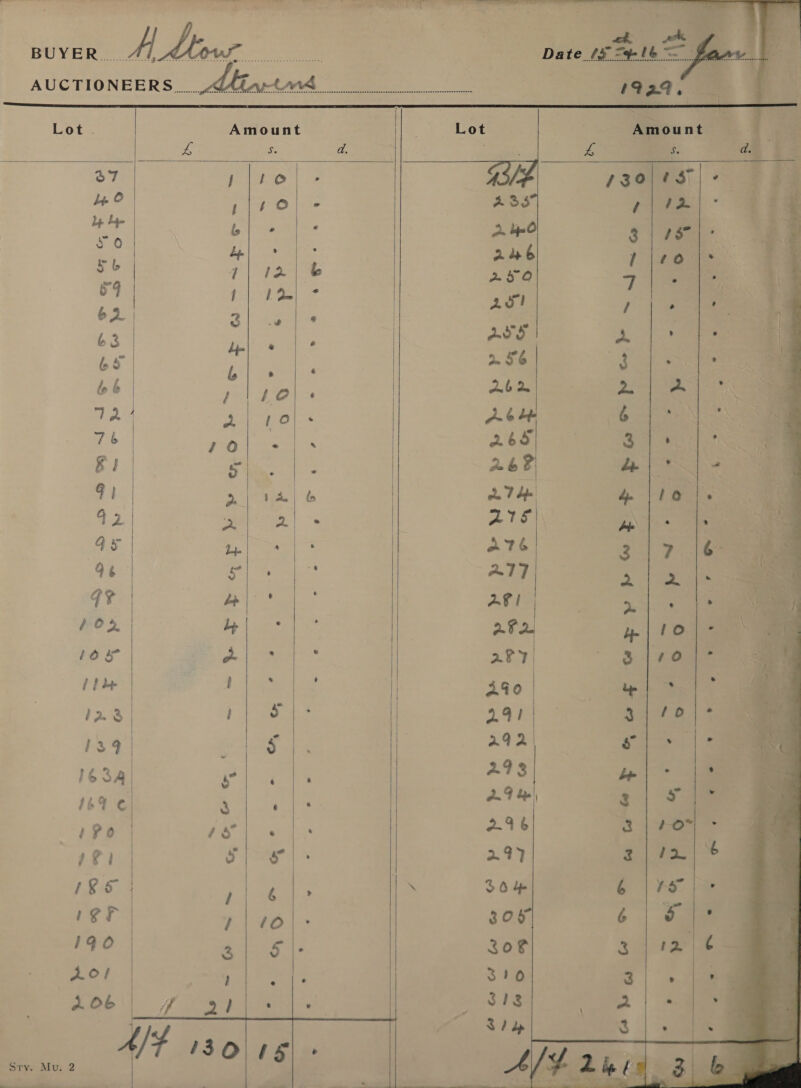 BUYER H. Stow Date 15th & 16th Jan
AUCTIONEERS Stevens 1929.
Lot Amount Lot Amount
£ s. d. £ s. d.
37 1 10 . B/F 130 15 .
40 1 10 . 235 1 12 .
44 6 . . 240 3 15 .
50 4 . . 246 1 10 .
56 1 12 6 250 7 . .
59 1 12 . 251 1 . .
62 3 . . 255 2 . .
63 4 . . 256 3 . .
65 6 . . 262 2 2 .
66 1 10 . 264 6 . .
72 2 10 . 265 3 . .
76 10 . . 268 4 . .
81 5 . . 274 4 10 .
91 2 12 6 275 4 . .
92 2 2 . 276 3 7 6
95 4 . . 277 2 2 .
96 5 . . 281 2 . .
98 4 . . 282 4 10 .
102 4 . . 287 3 10 .
105 2 . . 290 4 . .
114 1 . . 291 3 10 .
123 1 5 . 292 5 . .
139 . 5 . 293 4 . .
163A 5 . . 294 3 5 .
169 c 3 . . 296 3 10 .
180 15 . . 297 3 12 6
181 5 5 . 304 6 15 .
185 1 6 . 305 6 5 .
188 1 10 . 308 3 12 6
190 3 5 . 310 3 . .
201 1 . . 313 2 . .
206 21 . . 314 3 . .
130 15 . 3 6
Sty. Mu. 2